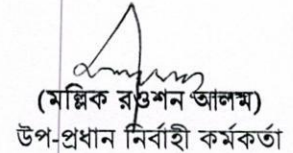 (মল্লিক রওশন আলম)
উপ-প্রধান নির্বাহী কর্মকর্তা